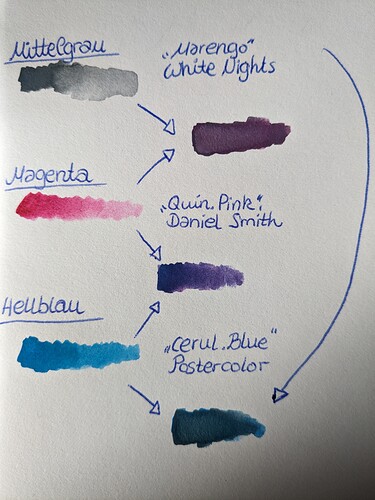 Mittelgrau
„Marengo“
White Nights
Magenta
„Quin. Pink“.
Daniel Smith
Hellblau
„Cerul. Blue“
Postercolor